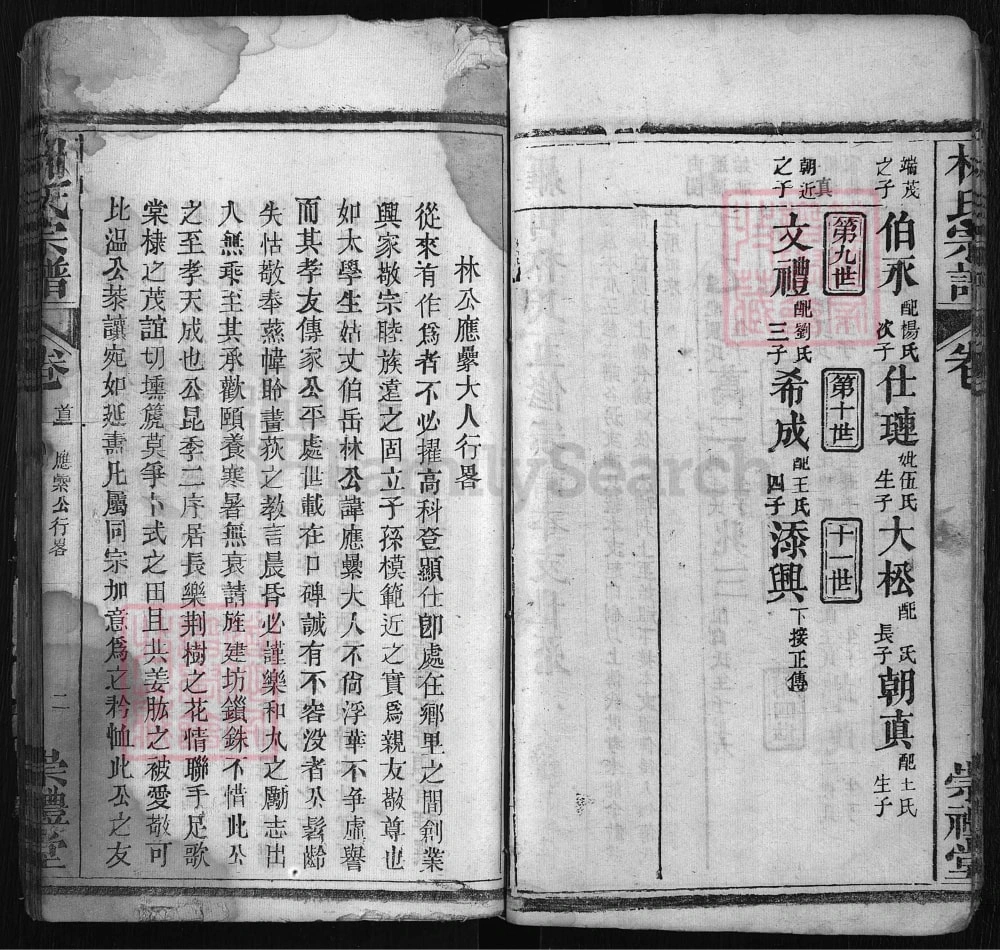 林氏宗譜 卷 崇禮堂
端茂之子 伯承 配楊氏 次子 仕璉 妣伍氏 生子 大松 配 氏 長子 朝真 配王氏 生子
第九世 第十世 十一世
朝真近之子 文禮 配劉氏 三子 希成 配王氏 四子 添興 下接正傳
林公應㬅大人行畧
從來有作為者不必擢高科登顯仕卽處在鄉里之間創業
興家敬宗睦族遠之固立子孫模範近之實為親友敬尊也
如太學生姑丈伯岳林公諱應㬅大人不尙浮華不爭虛譽
而其孝友傳家公平處世載在口碑誠有不容沒者公髫齡
失怙敬奉蒸幃聆畫荻之教言晨昏必謹樂和丸之勵志出
入無乖至其承歡頤養寒暑無衰請旌建坊錙銖不惜此公
之至孝天成也公昆季二序居長樂荆樹之花情聯手足歌
棠棣之茂誼切壎篪莫爭卜式之田且共姜肱之被愛敬可
比溫公恭讓宛如延壽凡屬同宗加意為之矜恤此公之友
氏宗譜 卷 首 應㬅公行畧 二 崇禮堂
FamilySearch